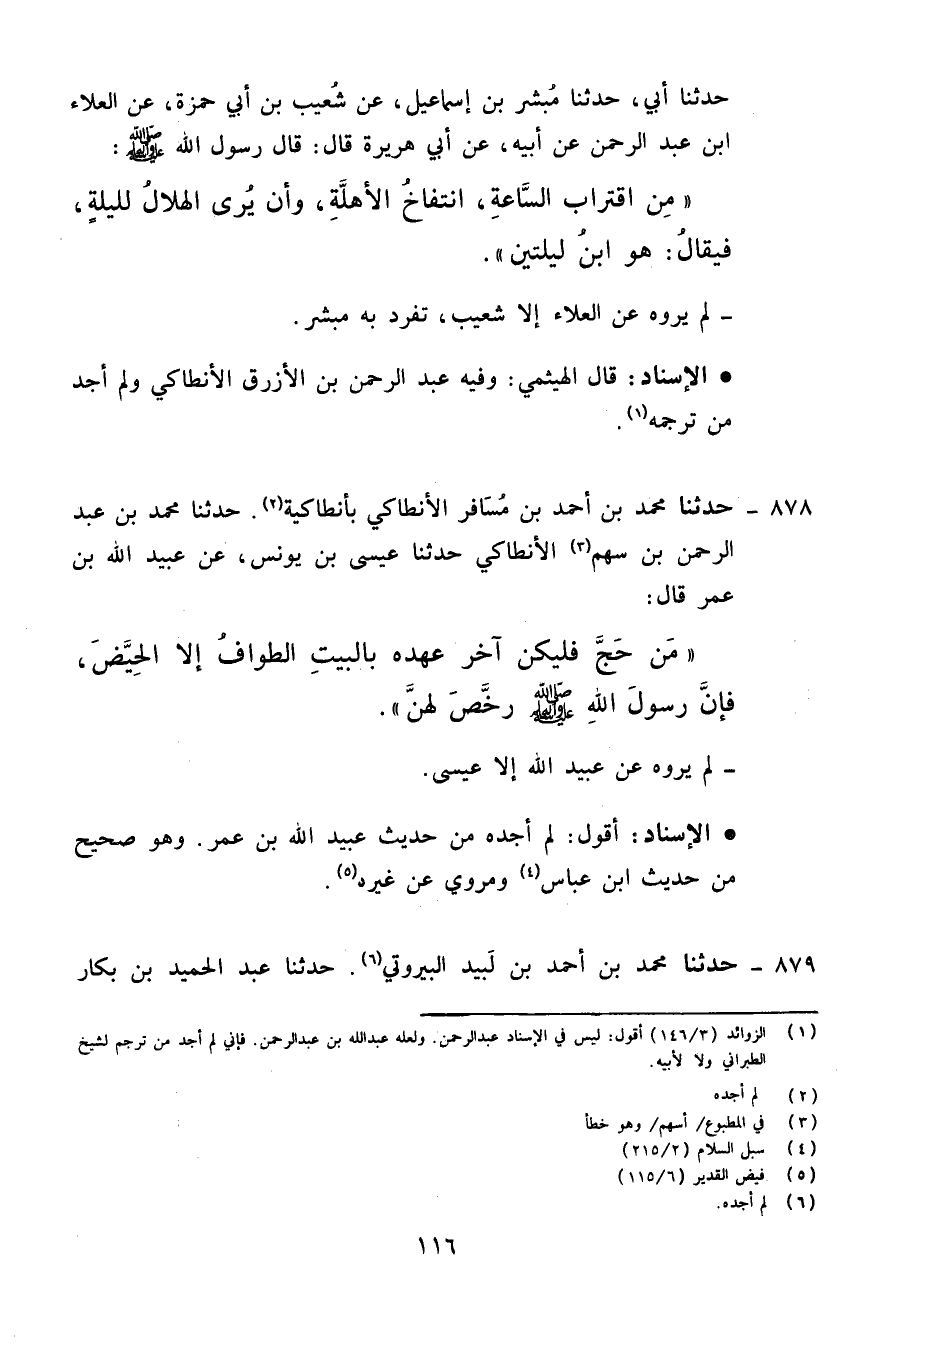 حدثنا أبي، حدثنا مُبشر بن إسماعيل، عن شُعيب بن أبي حمزة، عن العلاء
ابن عبد الرحمن عن أبيه، عن أبي هريرة قال: قال رسول الله ﷺ:
« مِن اقتراب السَّاعةِ، انتفاخُ الأهلَّةِ، وأن يُرى الهلالُ لليلةٍ،
فيقالُ: هو ابنُ ليلتين».
ـ لم يروه عن العلاء إلا شعيب، تفرد به مبشر.
● الإسناد: قال الهيثمي: وفيه عبد الرحمن بن الأزرق الأنطاكي ولم أجد
من ترجمه(١).
٨٧٨ ـ حدثنا محمد بن أحمد بن مُسَافر الأنطاكي بأنطاكية(٢). حدثنا محمد بن عبد
الرحمن بن سهم(٣) الأنطاكي حدثنا عيسى بن يونس، عن عبيد الله بن
عمر قال:
« مَن حَجَّ فليكن آخر عهده بالبيتِ الطوافُ إلا الحِيَّضَ،
فإنَّ رسولَ اللهِ ﷺ رخَّصَ لهنَّ».
ـ لم يروه عن عبيد الله إلا عيسى.
● الإسناد: أقول: لم أجده من حديث عبيد الله بن عمر. وهو صحيح
من حديث ابن عباس(٤) ومروي عن غيره(٥).
٨٧٩ ـ حدثنا محمد بن أحمد بن لَبيد البيروتي(٦). حدثنا عبد الحميد بن بكار
(١) الزوائد (١٤٦/٣) أقول: ليس في الإسناد عبدالرحمن. ولعله عبدالله بن عبدالرحمن. فإني لم أجد من ترجم لشيخ
الطبراني ولا لأبيه.
(٢) لم أجده
(٣) في المطبوع/ أسهم/ وهو خطأ
(٤) سبل السلام (٢١٥/٢)
(٥) فيض القدير (١١٥/٦)
(٦) لم أجده.
١١٦